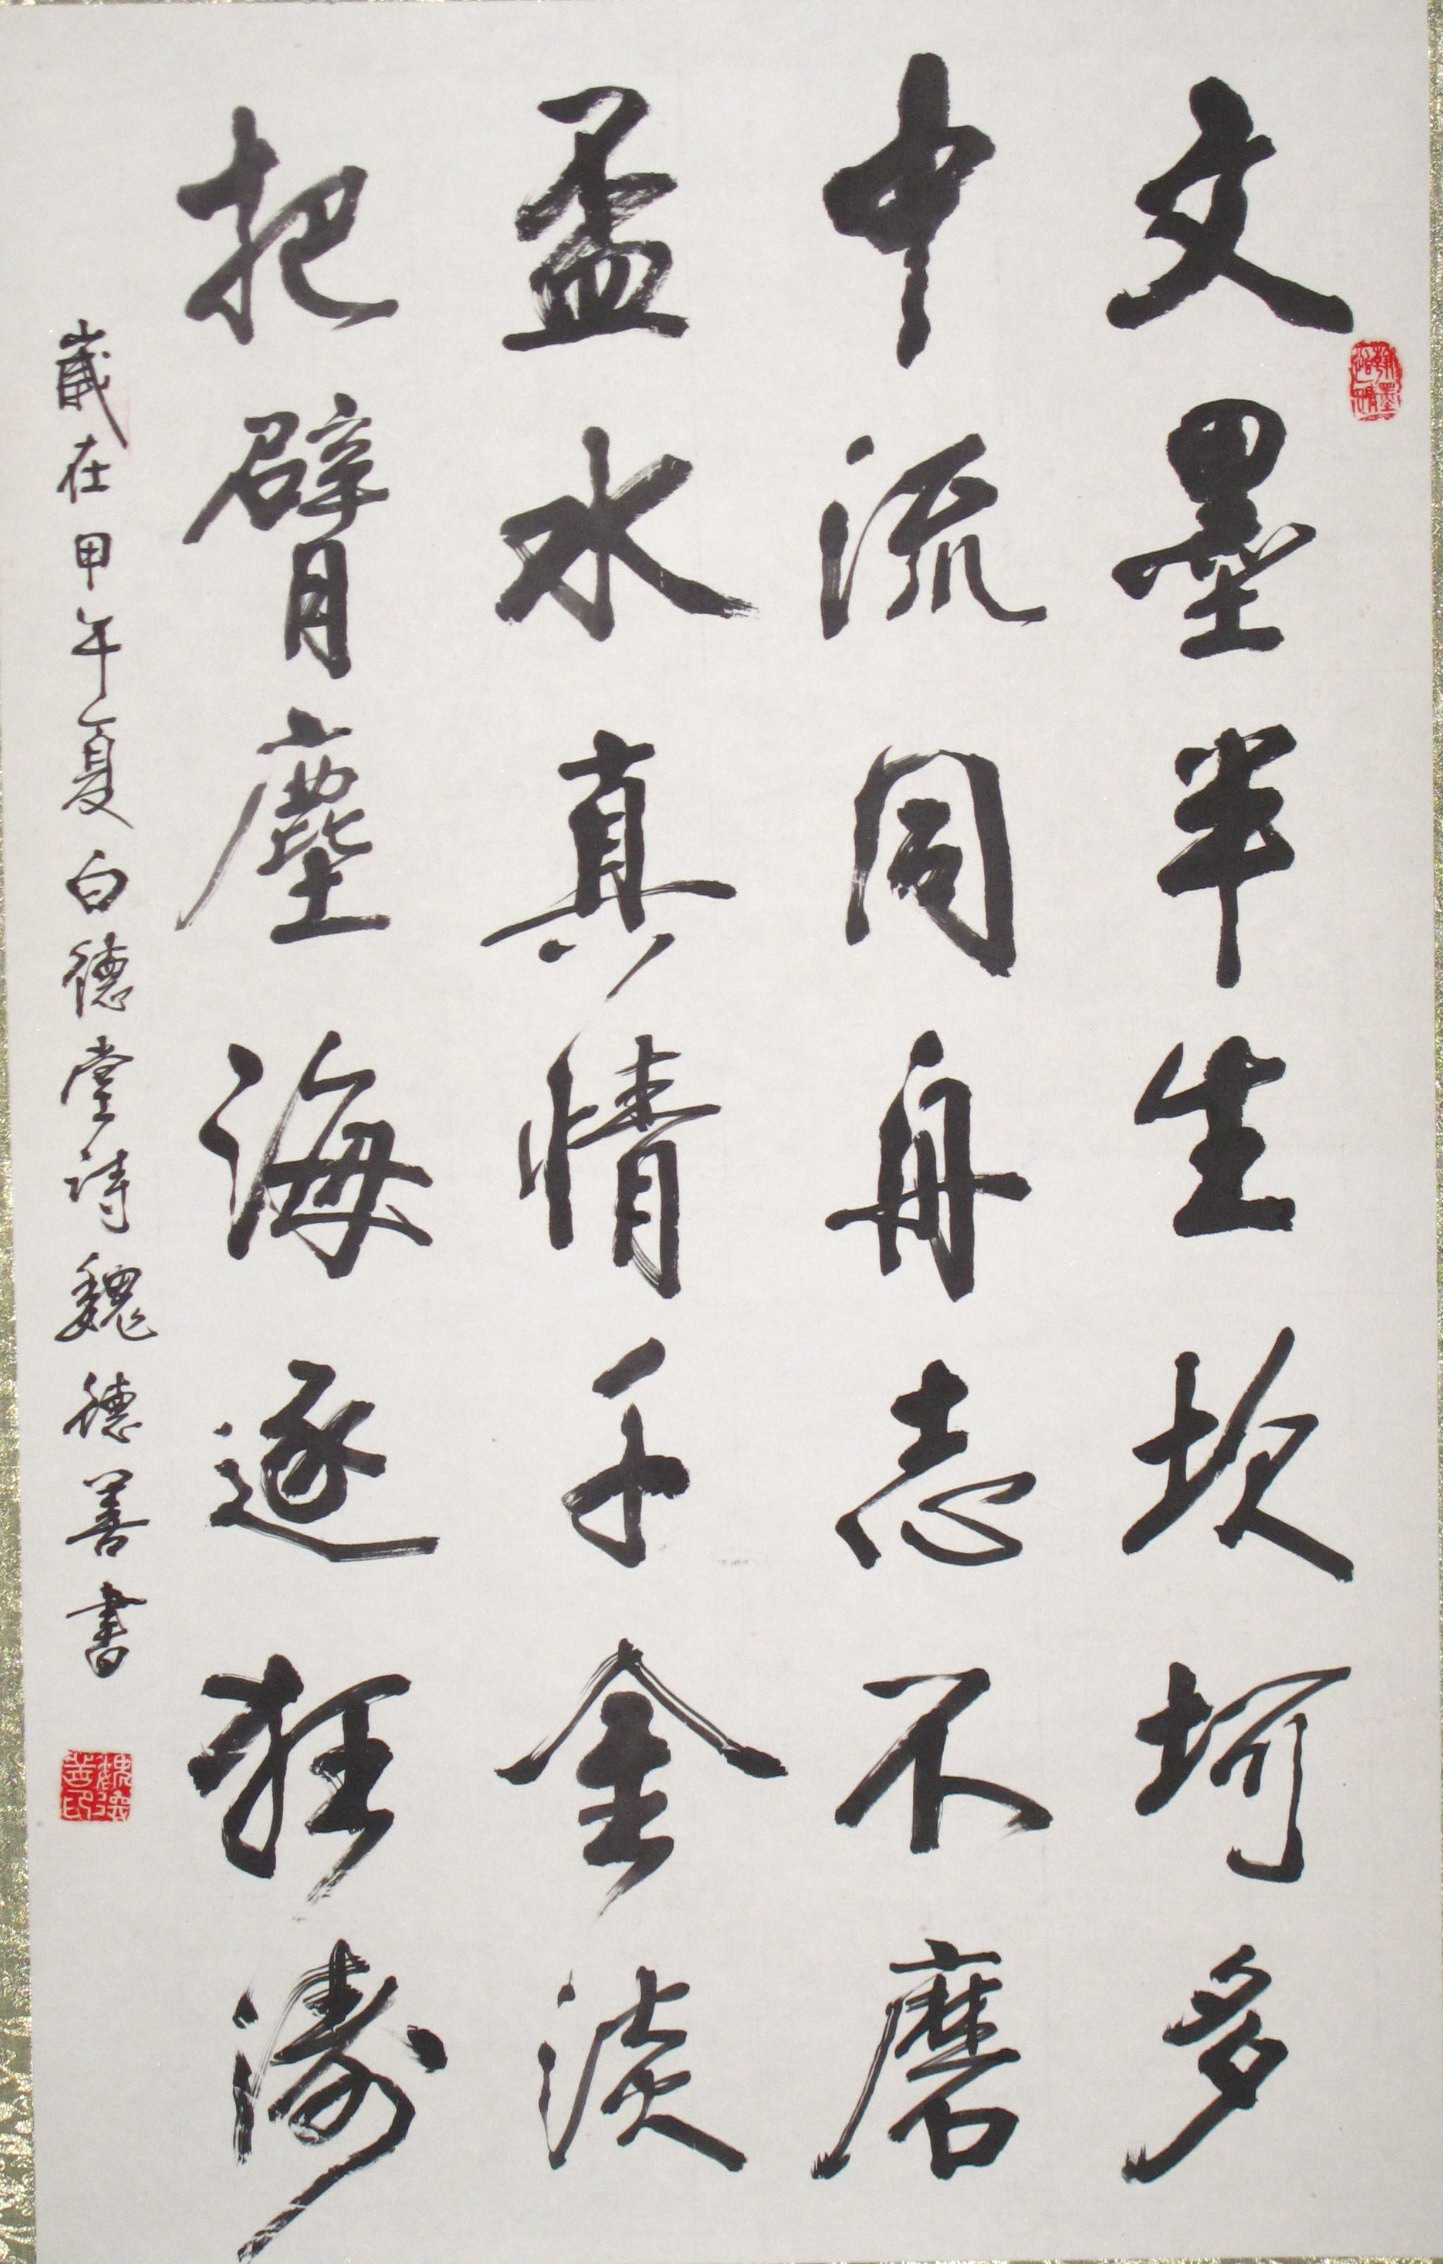 文墨半生坎坷多
中流同舟志不磨
盃水真情千金淡
把臂塵海逐狂濤
歲在甲午夏白德堂詩魏德善書
魏德善印